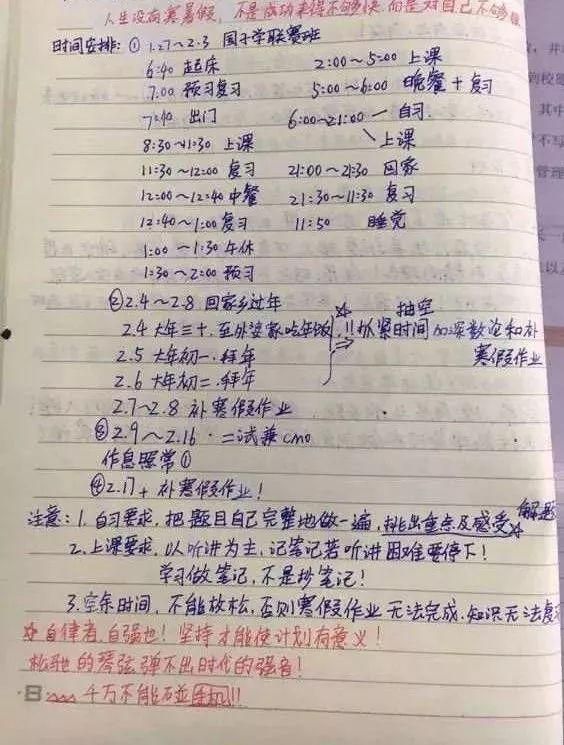 人生没有寒暑假，不是成功来得不够快，而是对自己不够狠
时间安排：① 1.27～2.3 国子学联赛班
6:40 起床 2:00～5:00 上课
7:00 预习复习 5:00～6:00 晚餐＋复习
7:40 出门 6:00～21:00 自习
8:30～11:30 上课 上课
11:30～12:00 复习 21:00～21:30 回家
12:00～12:40 中餐 21:30～11:30 复习
12:40～1:00 复习 11:50 睡觉
1:00～1:30 午休
1:30～2:00 预习
② 2.4～2.8 回家乡过年 抽空
2.4 大年三十，至外婆家吃年饭 !! 抓紧时间加深数论和补
2.5 大年初一，拜年 寒假作业
2.6 大年初二，拜年
2.7～2.8 补寒假作业
③ 2.9～2.16 · 二试兼cmo
作息照常①
④ 2.17+ 补寒假作业！
注意：1. 自习要求，把题目自己完整地做一遍，挑出重点及感受 解题
2. 上课要求，以听讲为主，记笔记若听讲困难要停下！
学习做笔记，不是抄笔记！
3. 空余时间，不能放松，否则寒假作业无法完成，知识无法复
☆ 自律者，自强也！坚持才能使计划有意义！
松驰的琴弦弹不出时代的强音！
千万不能碰手机!!!